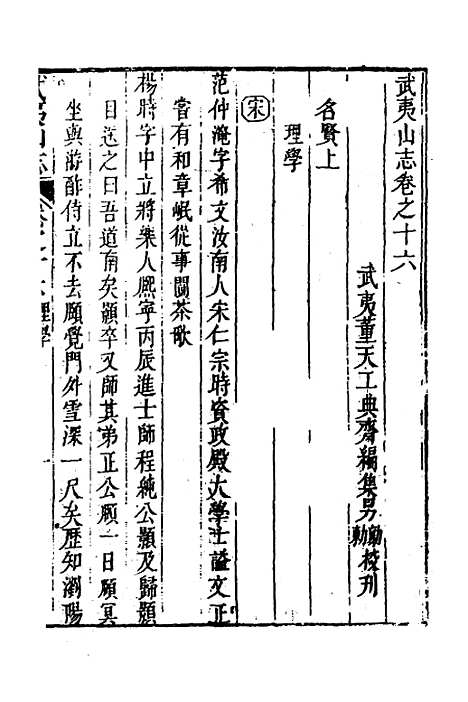 武夷山志卷之十六
武夷董天工典齋編集男勷勅校刊
名賢上
理學
宋
范仲淹字希文汝南人宋仁宗時資政殿大學士諡文正
嘗有和章岷從事鬭茶歌
楊時字中立將樂人熙寧丙辰進士師程純公顥及歸顥
目送之曰吾道南矣顥卒又師其弟正公頤一日頤冥
坐與游酢侍立不去頤覺門外雪深一尺矣歷知瀏陽
武夷山志 卷之十六理學 一